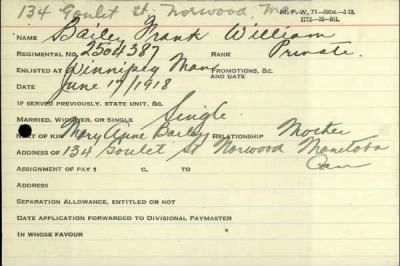 134 Goulet St; Norwood Man
M. F. W. 71
1772-39-90L.
NAME Bailey Frank William
REGIMENTAL NO. 2504387 RANK Private.
ENLISTED AT Winnipeg Man PROMOTIONS, &C. AND DATE
DATE June 17/1918
IF SERVED PREVIOUSLY, STATE UNIT, &C.
MARRIED, WIDOWER, OR SINGLE Single
NEXT OF KIN Mary Anne Bailey RELATIONSHIP Mother
ADDRESS OF 134 Goulet St Norwood Manitoba
Can
ASSIGNMENT OF PAY $ C. TO
ADDRESS
SEPARATION ALLOWANCE, ENTITLED OR NOT
DATE APPLICATION FORWARDED TO DIVISIONAL PAYMASTER
IN WHOSE FAVOUR